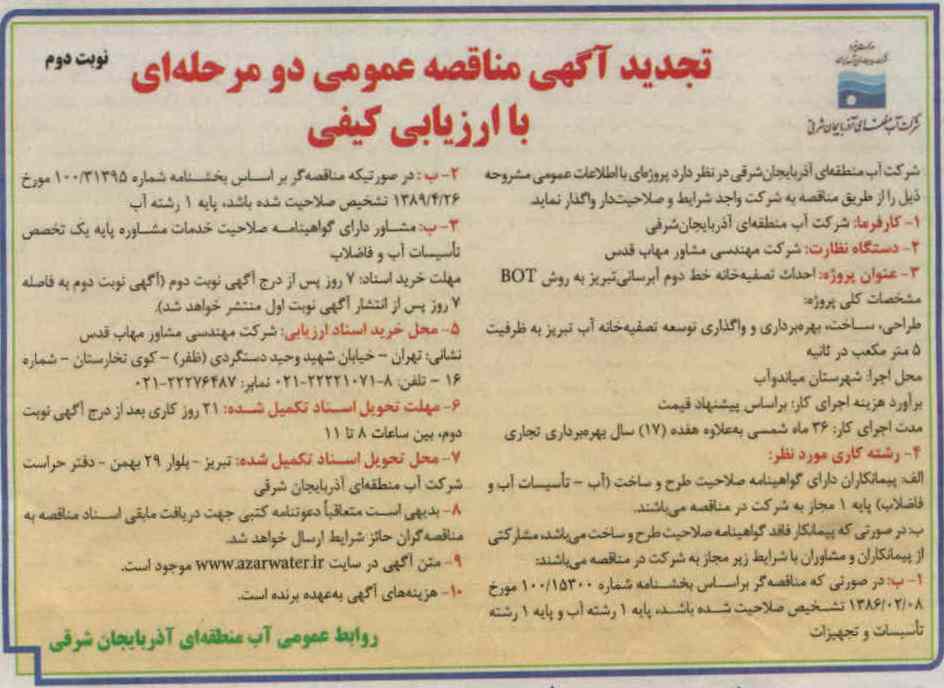 نوبت دوم
تجدید آگهی مناقصه عمومی دو مرحله‌ای
با ارزیابی کیفی
شرکت آب منطقه‌ای آذربایجان شرقی
شرکت آب منطقه‌ای آذربایجان‌شرقی در نظر دارد پروژه‌ای با اطلاعات عمومی مشروحه
ذیل را از طریق مناقصه به شرکت واجد شرایط و صلاحیت‌دار واگذار نماید.
۱- کارفرما: شرکت آب منطقه‌ای آذربایجان‌شرقی
۲- دستگاه نظارت: شرکت مهندسی مشاور مهاب قدس
۳- عنوان پروژه: احداث تصفیه‌خانه خط دوم آبرسانی‌تبریز به روش BOT
مشخصات کلی پروژه:
طراحی، ساخت، بهره‌برداری و واگذاری توسعه تصفیه‌خانه آب تبریز به ظرفیت
۵ متر مکعب در ثانیه
محل اجرا: شهرستان میاندوآب
برآورد هزینه اجرای کار: براساس پیشنهاد قیمت
مدت اجرای کار: ۳۶ ماه شمسی به‌علاوه هفده (۱۷) سال بهره‌برداری تجاری
۴- رشته کاری مورد نظر:
الف: پیمانکاران دارای گواهینامه صلاحیت طرح و ساخت (آب - تأسیسات آب و
فاضلاب) پایه ۱ مجاز به شرکت در مناقصه می‌باشند.
ب: در صورتی که پیمانکار فاقد گواهینامه صلاحیت طرح و ساخت می‌باشد، مشارکتی
از پیمانکاران و مشاوران با شرایط زیر مجاز به شرکت در مناقصه می‌باشند:
۱- ب: در صورتی که مناقصه‌گر براساس بخشنامه شماره ۱۰۰/۱۵۳۰۰ مورخ
۱۳۸۶/۰۲/۰۸ تشخیص صلاحیت شده باشد، پایه ۱ رشته آب و پایه ۱ رشته
تأسیسات و تجهیزات
۲- ب: در صورتیکه مناقصه‌گر بر اساس بخشنامه شماره ۱۰۰/۳۱۳۹۵ مورخ
۱۳۸۹/۴/۲۶ تشخیص صلاحیت شده باشد، پایه ۱ رشته آب
۳- ب: مشاور دارای گواهینامه صلاحیت خدمات مشاوره پایه یک تخصص
تأسیسات آب و فاضلاب
مهلت خرید اسناد: ۷ روز پس از درج آگهی نوبت دوم (آگهی نوبت دوم به فاصله
۷ روز پس از انتشار آگهی نوبت اول منتشر خواهد شد).
۵- محل خرید اسناد ارزیابی: شرکت مهندسی مشاور مهاب قدس
نشانی: تهران - خیابان شهید وحید دستگردی (ظفر) - کوی تخارستان - شماره
۱۶ - تلفن: ۸-۲۲۲۲۱۰۷۱-۰۲۱ نمابر: ۲۲۲۷۶۴۸۷-۰۲۱
۶- مهلت تحویل اسناد تکمیل شده: ۲۱ روز کاری بعد از درج آگهی نوبت
دوم، بین ساعات ۸ تا ۱۱
۷- محل تحویل اسناد تکمیل شده: تبریز - بلوار ۲۹ بهمن - دفتر حراست
شرکت آب منطقه‌ای آذربایجان شرقی
۸- بدیهی است متعاقباً دعوتنامه کتبی جهت دریافت مابقی اسناد مناقصه به
مناقصه‌گران حائز شرایط ارسال خواهد شد.
۹- متن آگهی در سایت www.azarwater.ir موجود است.
۱۰- هزینه‌های آگهی به‌عهده برنده است.
روابط عمومی آب منطقه‌ای آذربایجان شرقی